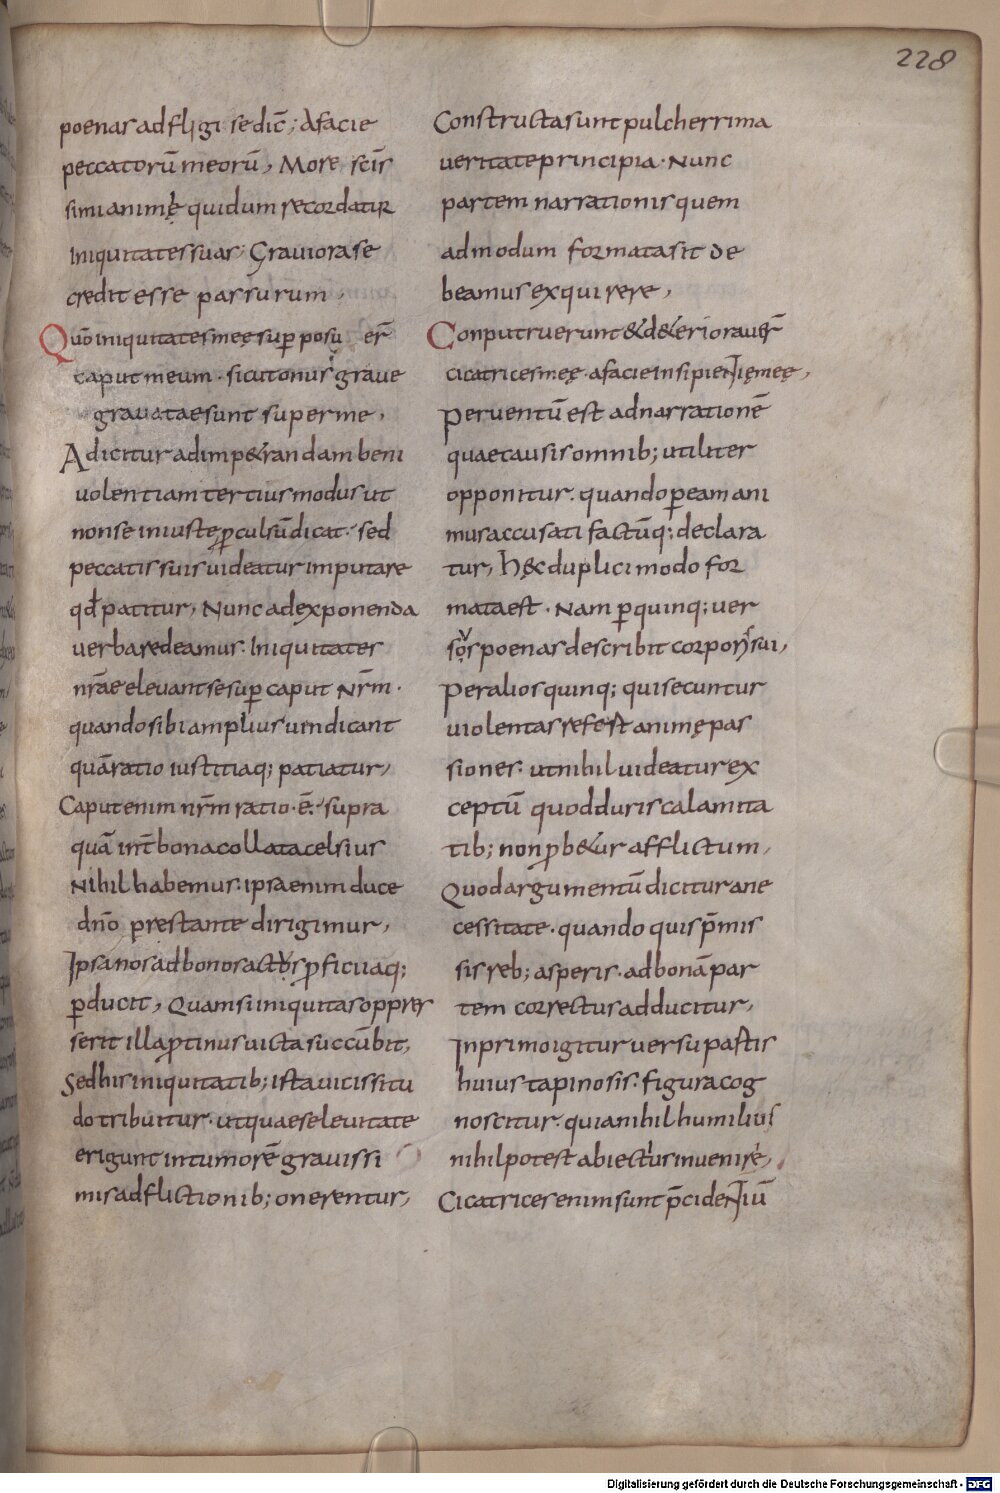 228
poenas adfligi se dic̄; A facie
peccatorū meorū, More scīs
simi animę qui dum recordatur
iniquitates suas; Graviora se
credit esse passurum,
Quō iniquitates meę sup posu er̄
caput meum · sicut onus grave
gravatae sunt super me,
Adicitur ad impetrandam beni
volentiam tertius modus ut
non se iniuste ꝑculsū dicat · sed
peccatis suis videatur imputare
qd̄ patitur, Nunc ad exponenda
verba redeamus · Iniquitates
nr̄ae elevant se suꝑ caput nr̄m ·
quando sibi amplius vindicant
quā ratio iustitiaq; patiatur,
Caput enim nr̄m ratio · ē · supra
quā int̄ bona collata celsius
nihil habemus · ipsa enim duce
dn̄o prestante dirigimur,
Ipsa nos ad bonos actus ꝓficuaq;
ꝑducit, Quam si iniquitas oppres
serit illa ꝓtinus victa succūbit,
Sed his iniquitatib; ista vicissitu
do tribuitur · ut quae se levitate
erigunt in tumorē gravissi
mis adflictionib; onerentur,
Constructa sunt pulcherrima
veritate principia · Nunc
partem narrationis quem
admodum formata sit de
beamus exquirere,
Conputruerunt & deteriorauer̄
cicatrices meę · a facie insipientię meę,
Perventū est ad narrationē
quae causis omnib; utiliter
opponitur · quando ꝑ eam ani
mus accusati factūq; declara
tur, hęc duplici modo for
mata est · Nam ꝑ quinq; ver
sos poenas describit corporis sui,
Per alios quinq; qui secuntur
violentas refert animę pas
siones · ut nihil videatur ex
ceptū quod duris calamita
tib; non ꝓbetur afflictum,
Quod argumentū dicitur a ne
cessitate · quando quis p̄mis
sis reb; asperis · ad bonā par
tem correctus adducitur,
In primo igitur versu partis
huius tapinosis · figura cog
noscitur · quia nihil humilius
nihil potest abiectius invenire,
Cicatrices enim sunt p̄cidentiū
Digitalisierung gefördert durch die Deutsche Forschungsgemeinschaft - DFG